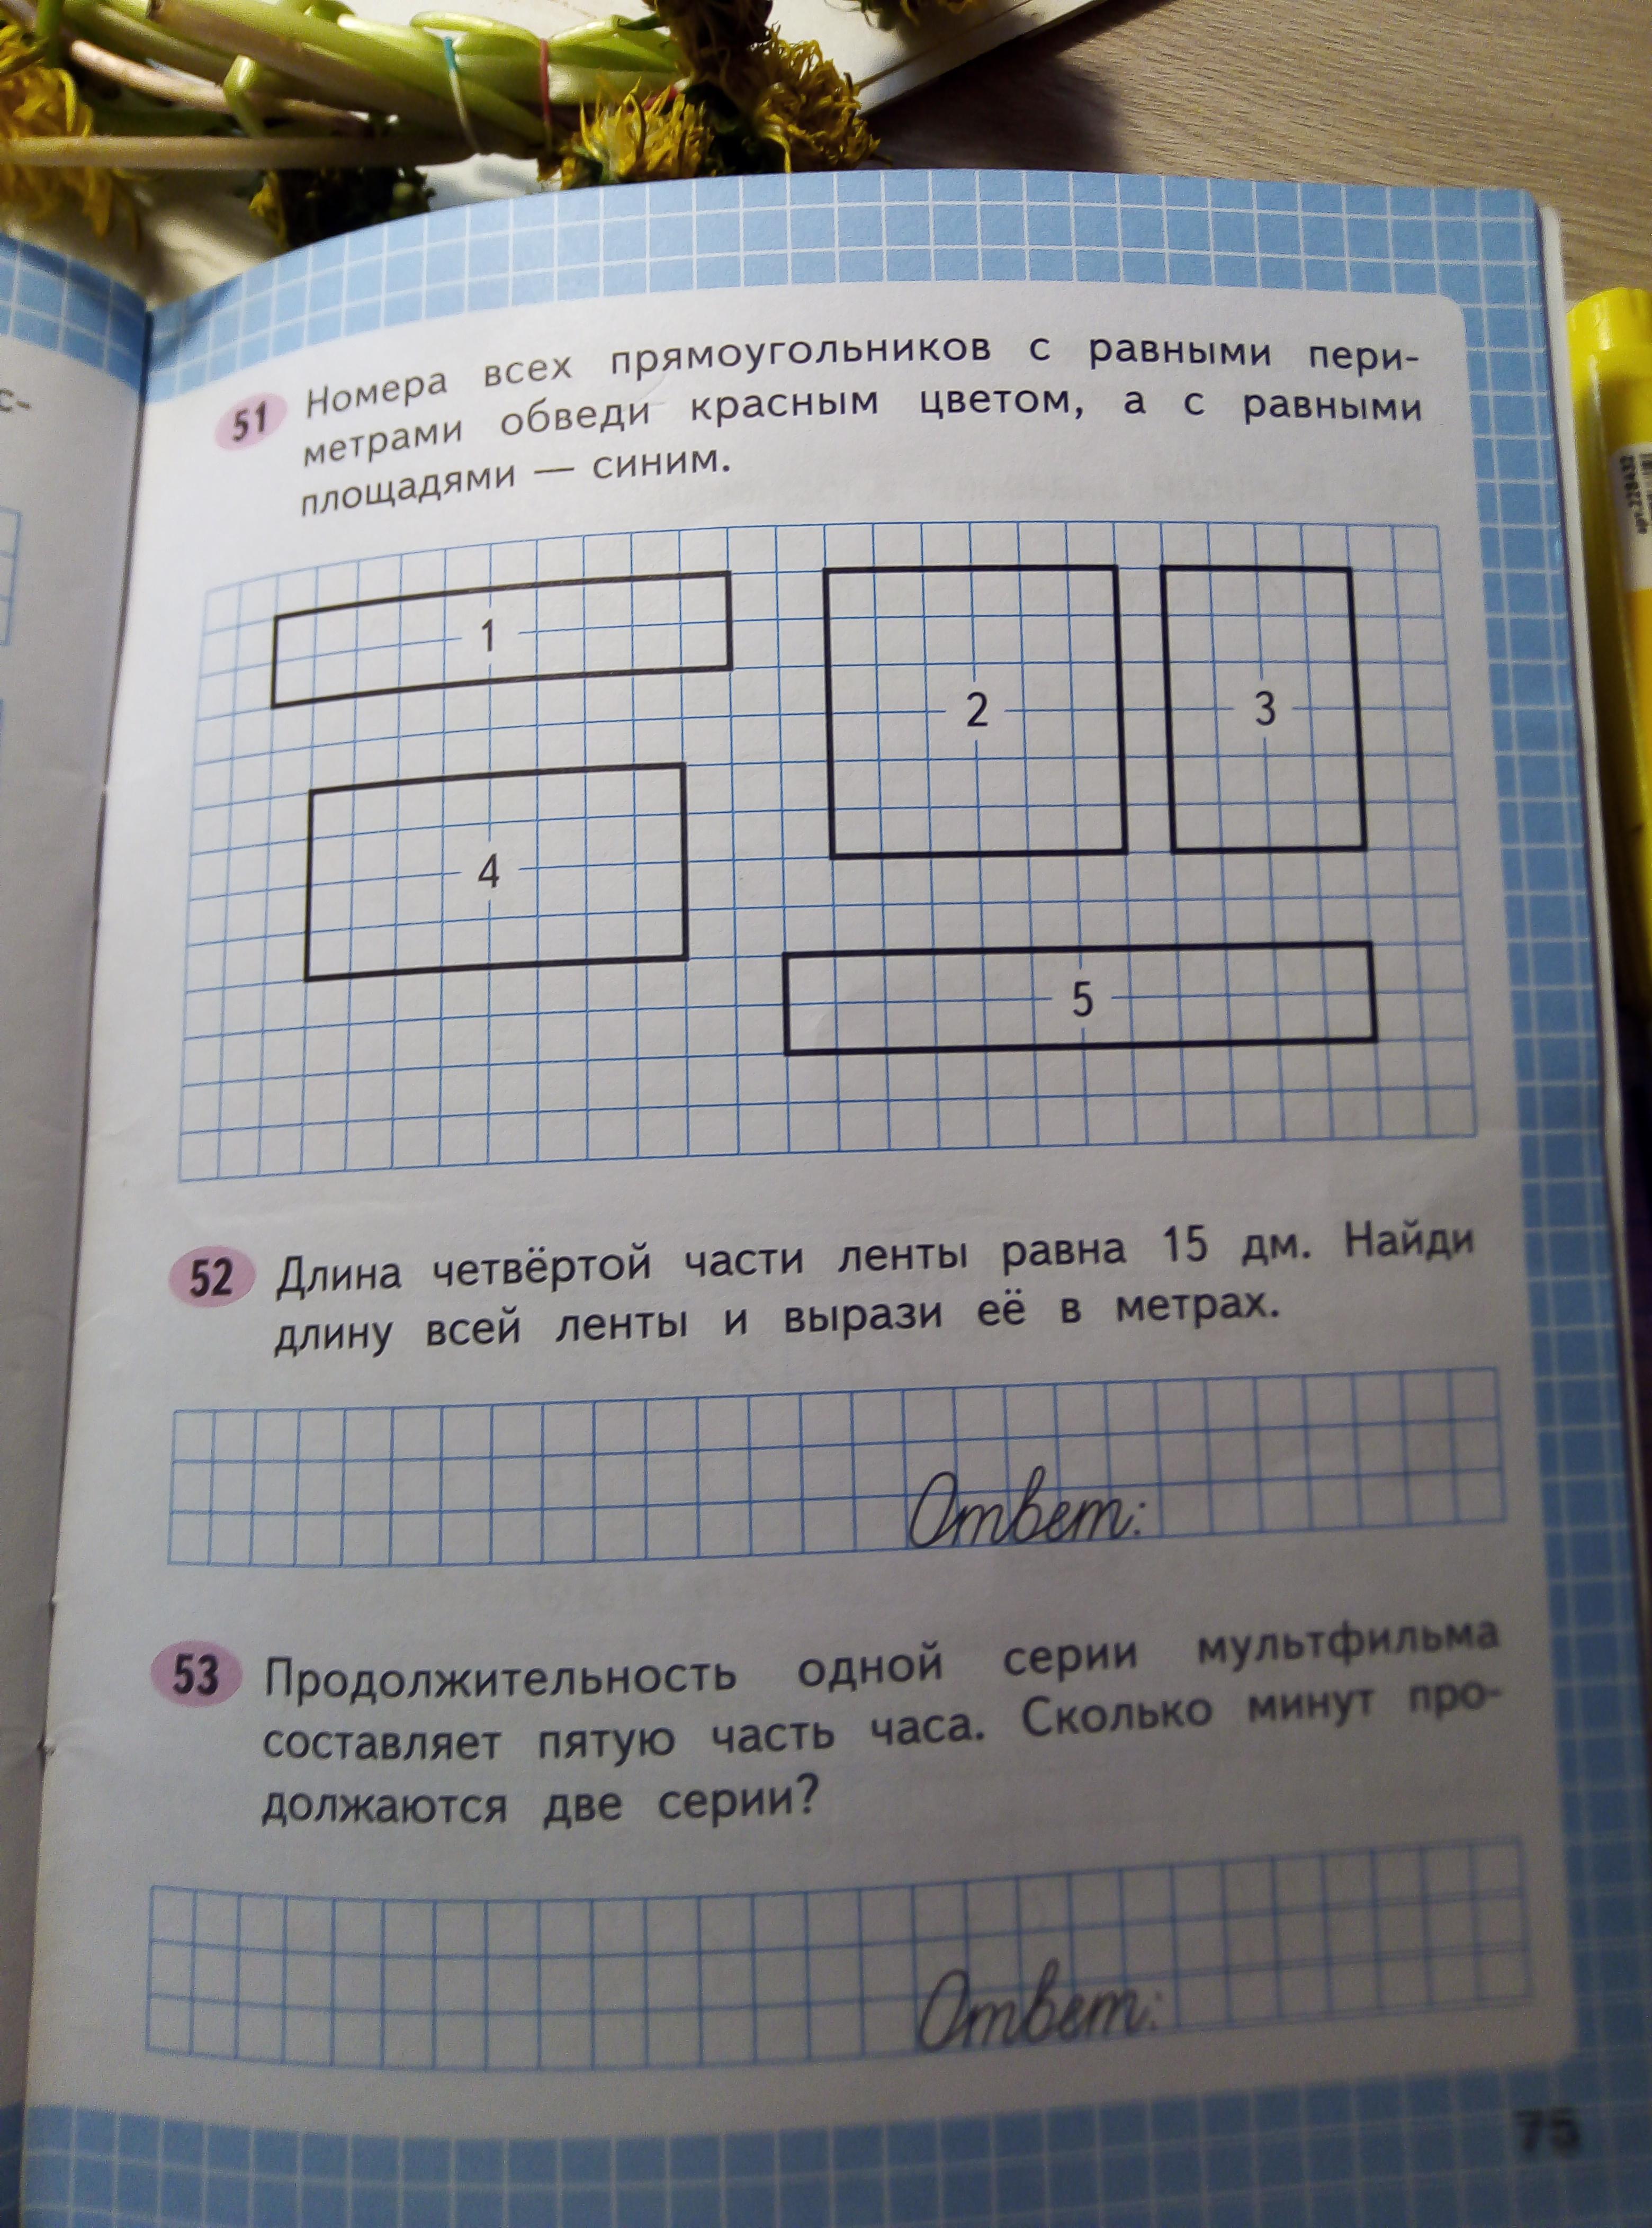 с-
51 Номера всех прямоугольников с равными пери-
метрами обведи красным цветом, а с равными
площадями — синим.
1
2
3
4
5
52 Длина четвёртой части ленты равна 15 дм. Найди
длину всей ленты и вырази её в метрах.
Ответ:
53 Продолжительность одной серии мультфильма
составляет пятую часть часа. Сколько минут про-
должаются две серии?
Ответ:
75